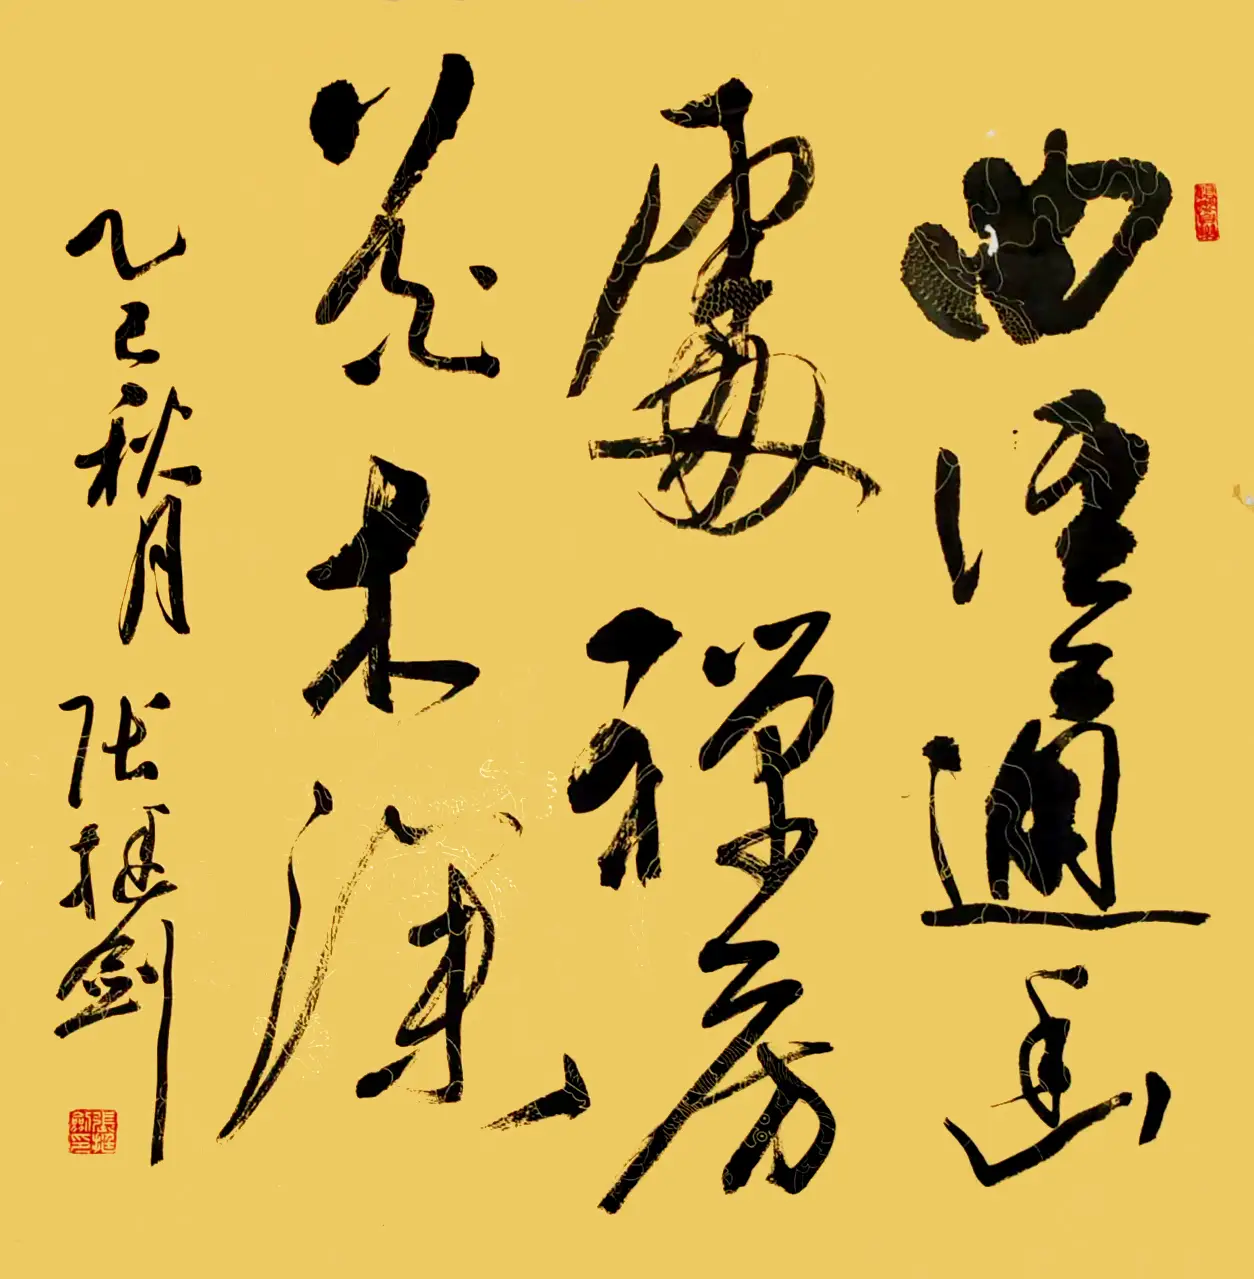 曲径通幽
處禅房
花木深
乙巳秋月 张挥剑